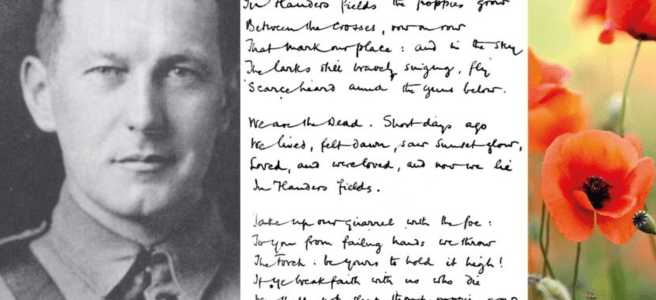 In Flanders fields the poppies grow
Between the crosses, row on row
That mark our place: and in the sky
The larks still bravely singing, fly
Scarce heard amid the guns below.
We are the Dead. Short days ago
We lived, felt dawn, saw sunset glow,
Loved, and were loved, and now we lie
In Flanders fields.
Take up our quarrel with the foe:
To you from failing hands we throw
The Torch: be yours to hold it high!
If ye break faith with us who die